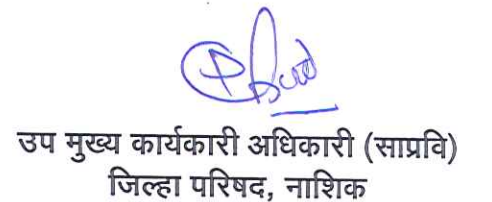 उप मुख्य कार्यकारी अधिकारी (साप्रवि)
जिल्हा परिषद, नाशिक